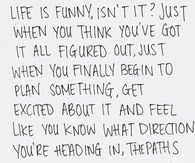 LIFE IS FUNNY, ISN'T IT? JUST
WHEN YOU THINK YOU'VE GOT
IT ALL FIGURED OUT, JUST
WHEN YOU FINALLY BEGIN TO
PLAN SOMETHING, GET
EXCITED ABOUT IT AND FEEL
LIKE YOU KNOW WHAT DIRECTION
YOU'RE HEADING IN, THE PATHS